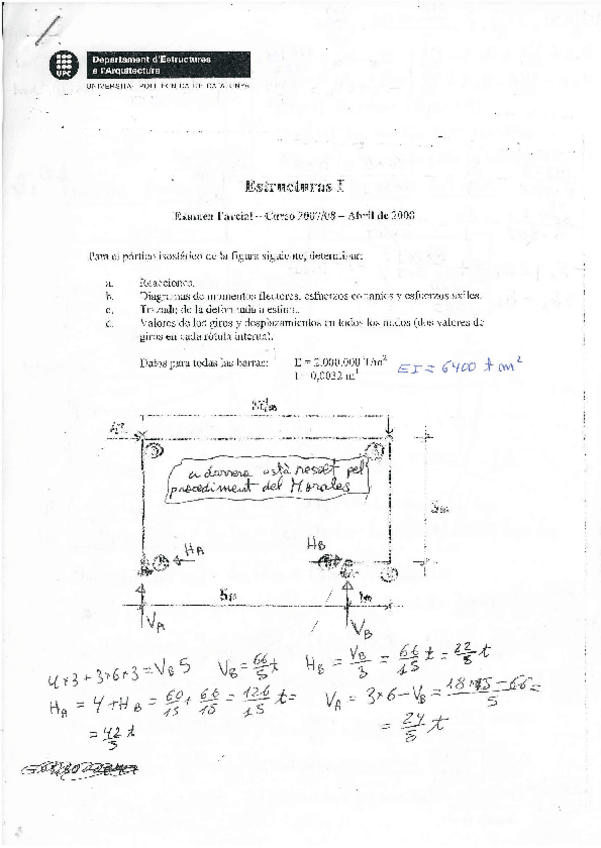 UPC
Departament d'Estructures
a l'Arquitectura
UNIVERSITAT POLITÈCNICA DE CATALUNYA
Estructuras I
Examen Parcial – Curso 2007/08 – Abril de 2008
Para el pórtico isostático de la figura siguiente, determinar:
a. Reacciones.
b. Diagramas de momentos flectores, esfuerzos cortantes y esfuerzos axiles.
c. Trazado de la deformada a estima.
d. Valores de los giros y desplazamientos en todos los nudos (dos valores de
giros en cada rótula interna).
Datos para todas las barras: E = 2.000.000 T/m²
EI = 6400 t m²
I = 0,0032 m⁴
a darrera està resolt pel
procediment del Morales
H_A
H_B
V_A
V_B
4×3+3×6×3=V_B 5 V_B=66/5 t H_B = V_B/3 = 66/15 t = 22/5 t
H_A = 4+H_B = 60/15 + 66/15 = 126/15 t =
V_A = 3×6-V_B =
= 42/5 t
= 24/5 t